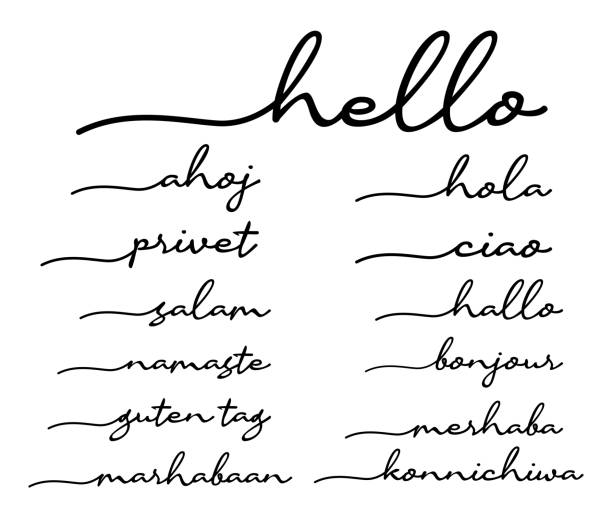 hello
ahoj
privet
salam
namaste
guten tag
marhabaan
hola
ciao
hallo
bonjour
merhaba
konnichiwa